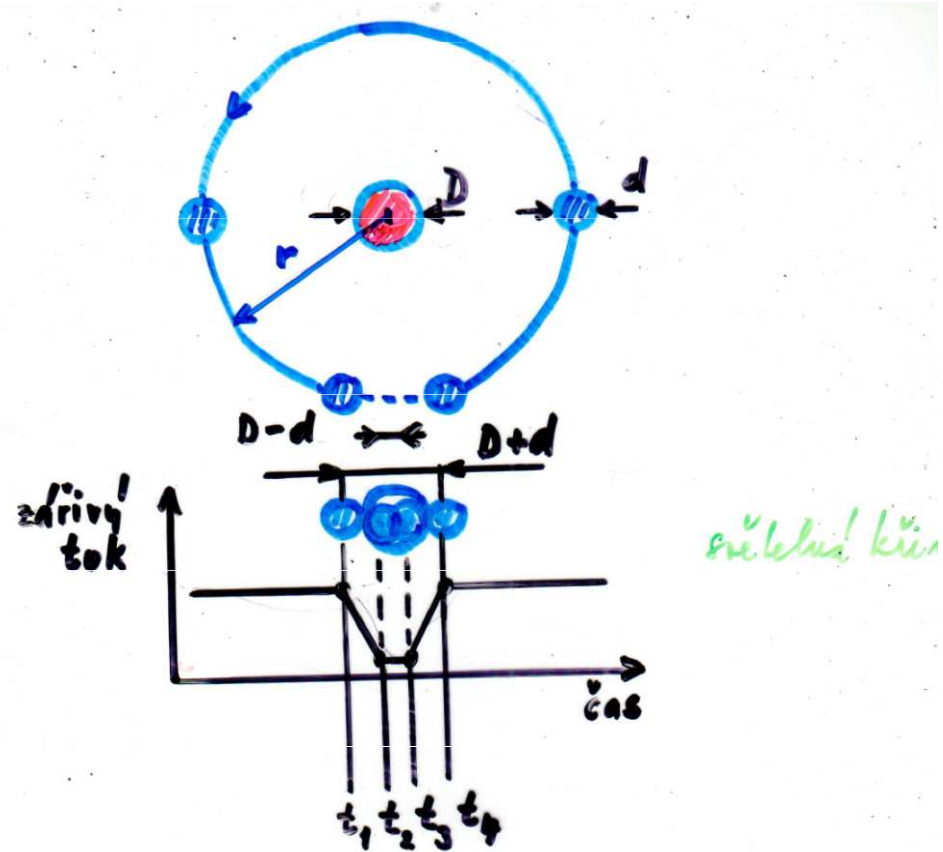 D
d
r
D-d
D+d
zářivý
tok
světelná
čas
t1 t2 t3 t4